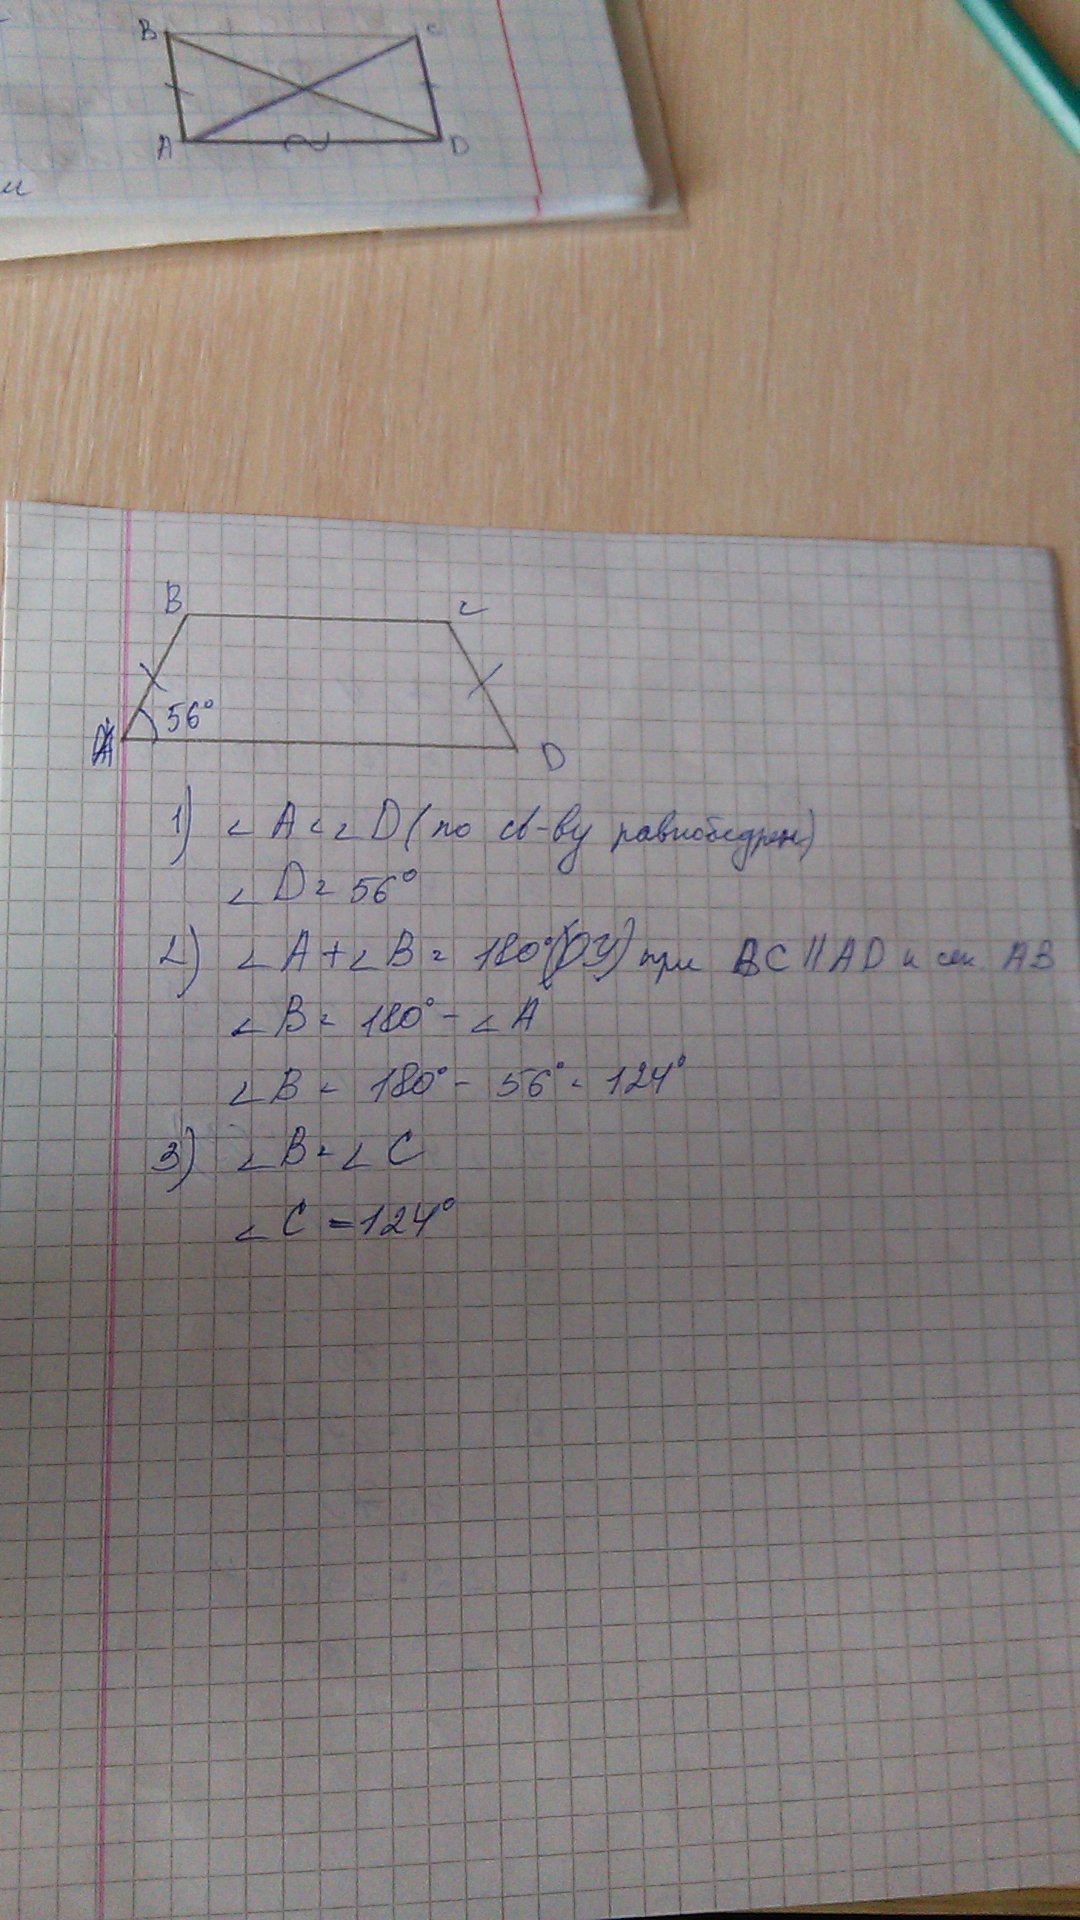 B C
A D
и
B C
56°
A D
1) ∠A = ∠D (по св-ву равнобедрен)
∠D = 56°
2) ∠A + ∠B = 180° (ОУ) при BC || AD и сек. AB
∠B = 180° - ∠A
∠B = 180° - 56° = 124°
3) ∠B = ∠C
∠C = 124°